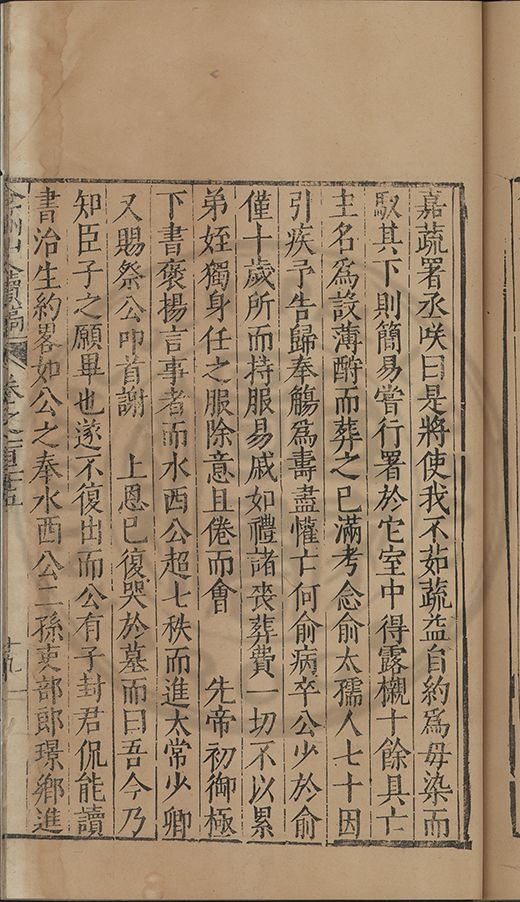 嘉蔬署丞咲曰是將使我不茹蔬益自約爲毋染而
馭其下則簡易嘗行署於它室中得露櫬十餘具亡
主名爲設薄酹而葬之已滿考念俞太孺人七十因
引疾予告歸奉觴爲壽盡懽亡何俞病卒公少於俞
僅十歲所而持服易戚如禮諸喪葬費一切不以累
弟姪獨身任之服除意且倦而會　先帝初御極
下書褒楊言事者而水西公超七秩而進太常少卿
又賜祭公叩首謝　上恩已復哭於墓而曰吾今乃
知臣子之願畢也遂不復出而公有子封君侃能讀
書治生約畧如公之奉水西公二孫吏部郎璟鄉進
弇州山人續稿　卷之一百二十五　十九